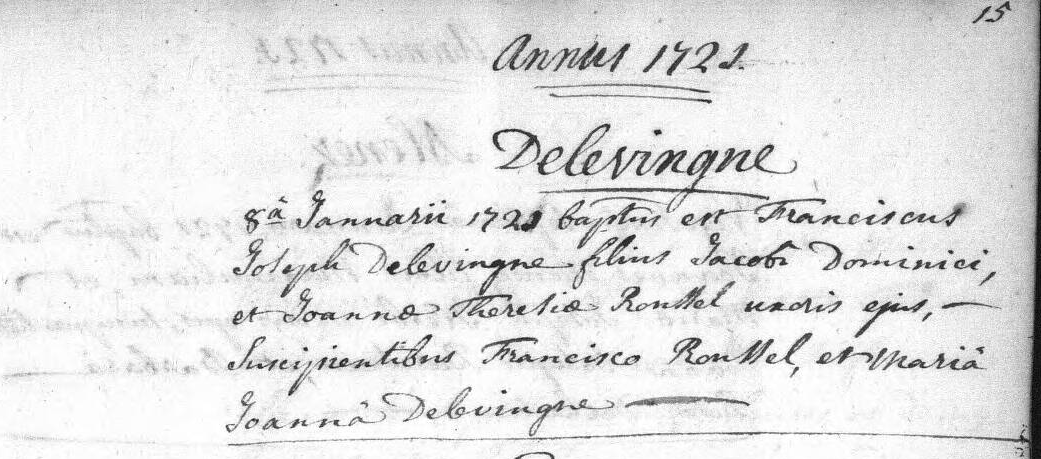 15
Annus 1721.
Delevingne
8â Januarii 1721 baptus est Franciscus
Joseph Delevingne filius Jacobi Dominici,
et Joannæ Theresiæ Roussel uxoris ejus, —
Suscipientibus Francisco Roussel, et Mariâ
Joannâ Delevingne —